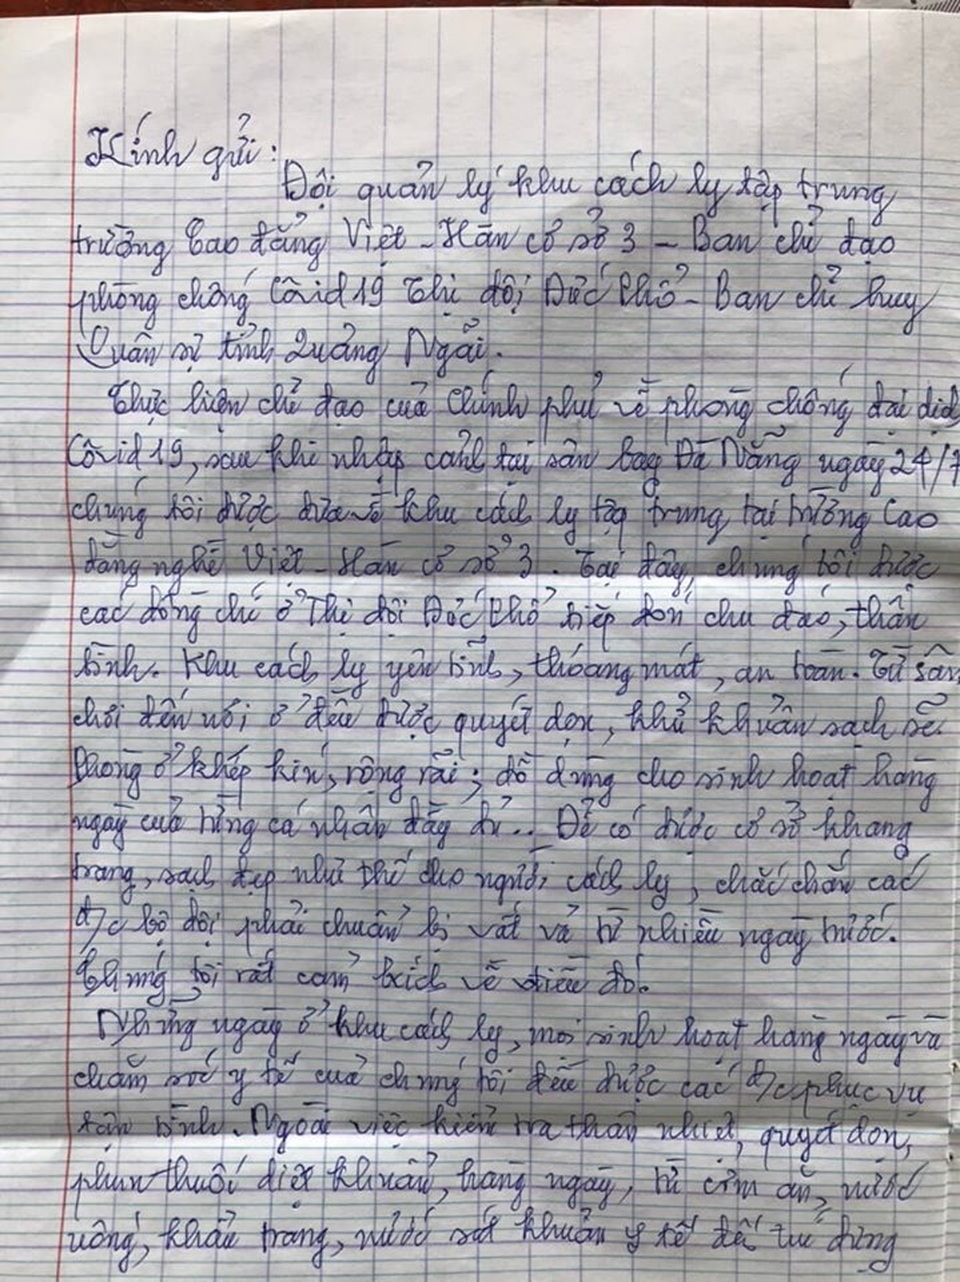 Kính gửi:
Đội quản lý khu cách ly tập trung
trường Cao đẳng Việt - Hàn cơ sở 3 - Ban chỉ đạo
phòng chống Côvid 19 Thị đội Đức Phổ - Ban chỉ huy
Quân sự tỉnh Quảng Ngãi.
Thực hiện chỉ đạo của Chính phủ về phòng chống đại dịch
Côvid 19, sau khi nhập cảnh tại sân bay Đà Nẵng ngày 24/7
chúng tôi được đưa về khu cách ly tập trung tại trường Cao
đẳng nghề Việt - Hàn cơ sở 3. Tại đây, chúng tôi được
các đồng chí ở Thị đội Đức Phổ tiếp đón chu đáo, thân
tình. Khu cách ly yên tĩnh, thoáng mát, an toàn. Từ sân
chơi đến nơi ở đều được quyét dọn, khử khuẩn sạch sẽ.
Phòng ở khép kín, rộng rãi; đồ dùng cho sinh hoạt hàng
ngày của từng cá nhân đầy đủ... Để có được cơ sở khang
trang, sạch đẹp như thế cho người cách ly, chắc chắn các
đ/c bộ đội phải chuẩn bị vất vả từ nhiều ngày trước.
Chúng tôi rất cảm kích về điều đó.
Những ngày ở khu cách ly, mọi sinh hoạt hàng ngày và
chăm sóc y tế của chúng tôi đều được các đ/c phục vụ
tận tình. Ngoài việc kiểm tra thân nhiệt, quyét dọn,
phun thuốc diệt khuẩn, hàng ngày, từ cơm ăn, nước
uống, khẩu trang, nước sát khuẩn y tế đến